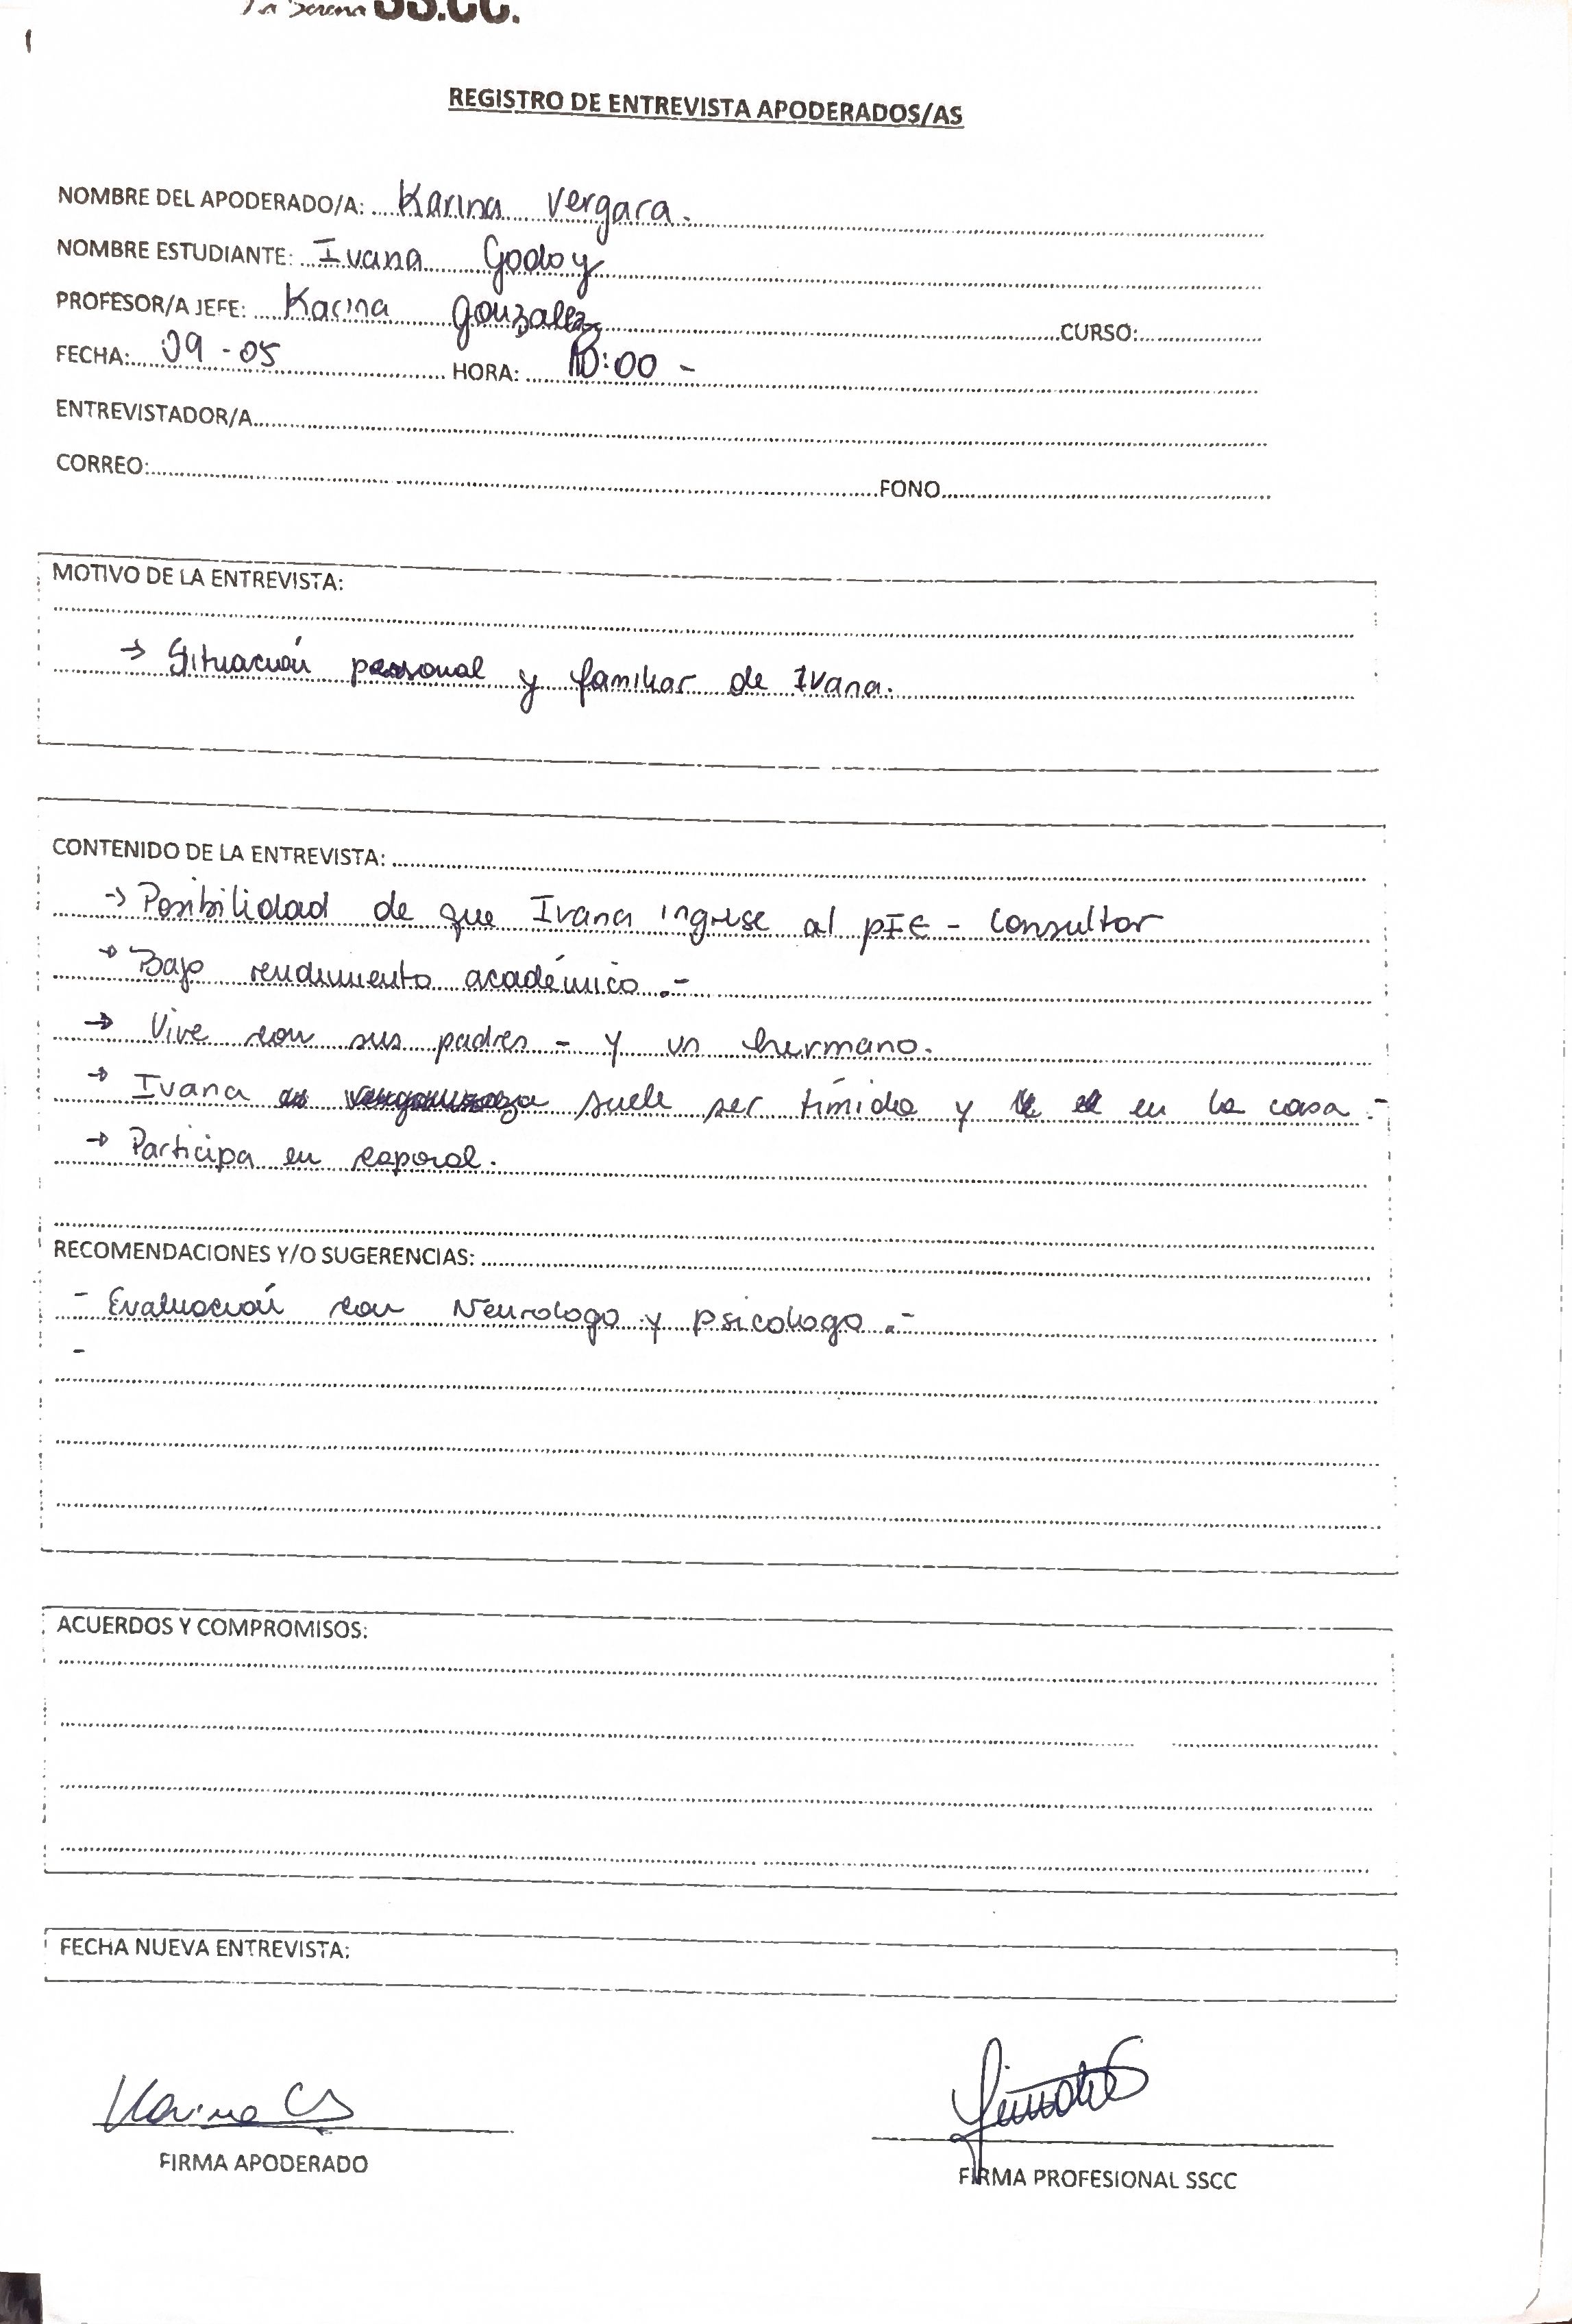 La Serena SS.CC.
REGISTRO DE ENTREVISTA APODERADOS/AS
NOMBRE DEL APODERADO/A: Karina Vergara.
NOMBRE ESTUDIANTE: Ivana Godoy
PROFESOR/A JEFE: Karina Gonzalez CURSO:
FECHA: 09-05 HORA: 10:00 -
ENTREVISTADOR/A
CORREO: FONO
MOTIVO DE LA ENTREVISTA:
→ Situación personal y familiar de Ivana.
CONTENIDO DE LA ENTREVISTA:
→ Posibilidad de que Ivana ingrese al PIE - Consultar
→ Bajo rendimiento académico.-
→ Vive con sus padres - y un hermano.
→ Ivana suele ser tímida y en la casa.-
→ Participa en
RECOMENDACIONES Y/O SUGERENCIAS:
- Evaluación con Neurologo y psicologo.-
-
ACUERDOS Y COMPROMISOS:
FECHA NUEVA ENTREVISTA:
FIRMA APODERADO
FIRMA PROFESIONAL SSCC